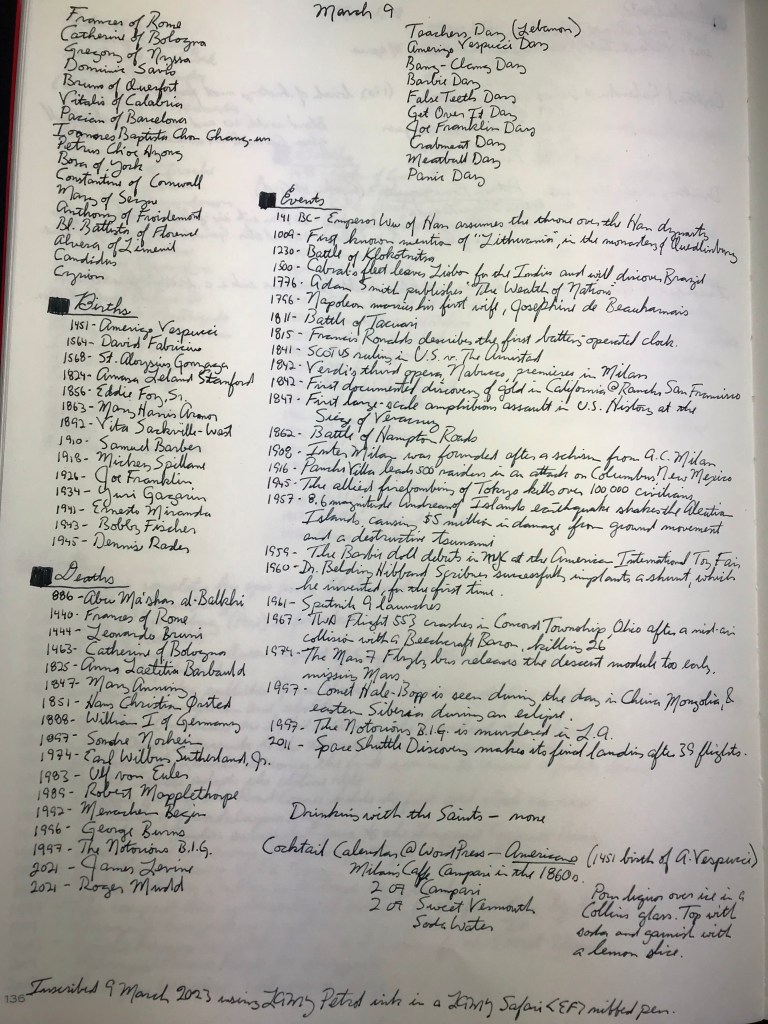 March 9
Frances of Rome
Catherine of Bologna
Gregory of Nyssa
Dominic Savio
Bruno of Querfort
Vitalis of Calabria
Pacian of Barcelona
Ioannes Baptista Chon Chang-un
Petrus Ch'oe Hyong
Bosa of York
Constantine of Cornwall
Mary of Segni
Anthony of Froidemont
Bl. Battista of Florence
Alvera of Limeuil
Candidus
Cyrion
Teachers Day (Lebanon)
Amerigo Vespucci Day
Bang-Clang Day
Barbie Day
False Teeth Day
Get Over It Day
Joe Franklin Day
Crabmeat Day
Meatball Day
Panic Day
Births
1451- Amerigo Vespucci
1564- David Fabricius
1568- St. Aloysius Gonzaga
1824- Amasa Leland Stanford
1856- Eddie Foy, Sr.
1863- Mary Harris Armor
1892- Vita Sackville-West
1910- Samuel Barber
1918- Mickey Spillane
1926- Joe Franklin
1934- Yuri Gagarin
1941- Ernesto Miranda
1943- Bobby Fischer
1945- Dennis Rader
Deaths
886- Abu Ma'shar al-Balkhi
1440- Frances of Rome
1444- Leonardo Bruni
1463- Catherine of Bologna
1825- Anna Laetitia Barbauld
1847- Mary Anning
1851- Hans Christian Ørsted
1888- William I of Germany
1897- Sondre Norheim
1974- Earl Wilbur Sutherland, Jr.
1983- Ulf von Euler
1989- Robert Mapplethorpe
1992- Menachem Begin
1996- George Burns
1997- The Notorious B.I.G.
2021- James Levine
2021- Roger Mudd
Events
141 BC- Emperor Wu of Han assumes the throne over the Han dynasty
1009- First known mention of "Lithuania", in the monastery of Quedlinburg
1230- Battle of Klokotnitsa
1500- Cabral's fleet leaves Lisbon for the Indies and will discover Brazil
1776- Adam Smith publishes "The Wealth of Nations"
1796- Napoleon marries his first wife, Josephine de Beauharnais
1811- Battle of Tacuari
1815- Francis Ronalds describes the first battery-operated clock.
1841- SCOTUS ruling in U.S. v. The Amistad
1842- Verdi's third opera, Nabucco, premieres in Milan
1842- First documented discovery of gold in California @ Rancho San Francisco
1847- First large-scale amphibious assault in U.S. History at the
Siege of Veracruz
1862- Battle of Hampton Roads
1908- Inter Milan was founded after a schism from A.C. Milan
1916- Pancho Villa leads 500 raiders in an attack on Columbus, New Mexico
1945- The allied firebombing of Tokyo kills over 100 000 civilians
1957- 8.6 magnitude Andreanof Islands earthquake shakes the Aleutian
Islands, causing $5 million in damage from ground movement
and a destructive tsunami
1959- The Barbie doll debuts in NYC at the American International Toy Fair
1960- Dr. Belding Hibbard Scribner successfully implants a shunt, which
he invented, for the first time.
1961- Sputnik 9 launches
1967- TWA Flight 553 crashes in Concord Township, Ohio after a mid-air
collision with a Beechcraft Baron, killing 26
1974- The Mars 7 Flyby bus releases the descent module too early.
missing Mars
1997- Comet Hale-Bopp is seen during the day in China, Mongolia, &
eastern Siberia during an eclipse.
1997- The Notorious B.I.G. is murdered in L.A.
2011- Space Shuttle Discovery makes its final landing after 39 flights.
Drinking with the Saints - none
Cocktail Calendar @ WordPress - Americano (1451 birth of A. Vespucci)
Milan's Caffe Campari in the 1860s.
2 oz Campari
2 oz Sweet Vermouth
Soda Water
Pour liquor over ice in a
Collins glass. Top with
soda and garnish with
a lemon slice.
136 Inscribed 9 March 2023 using LAMY Petrol ink in a LAMY Safari <EF> nibbed pen.